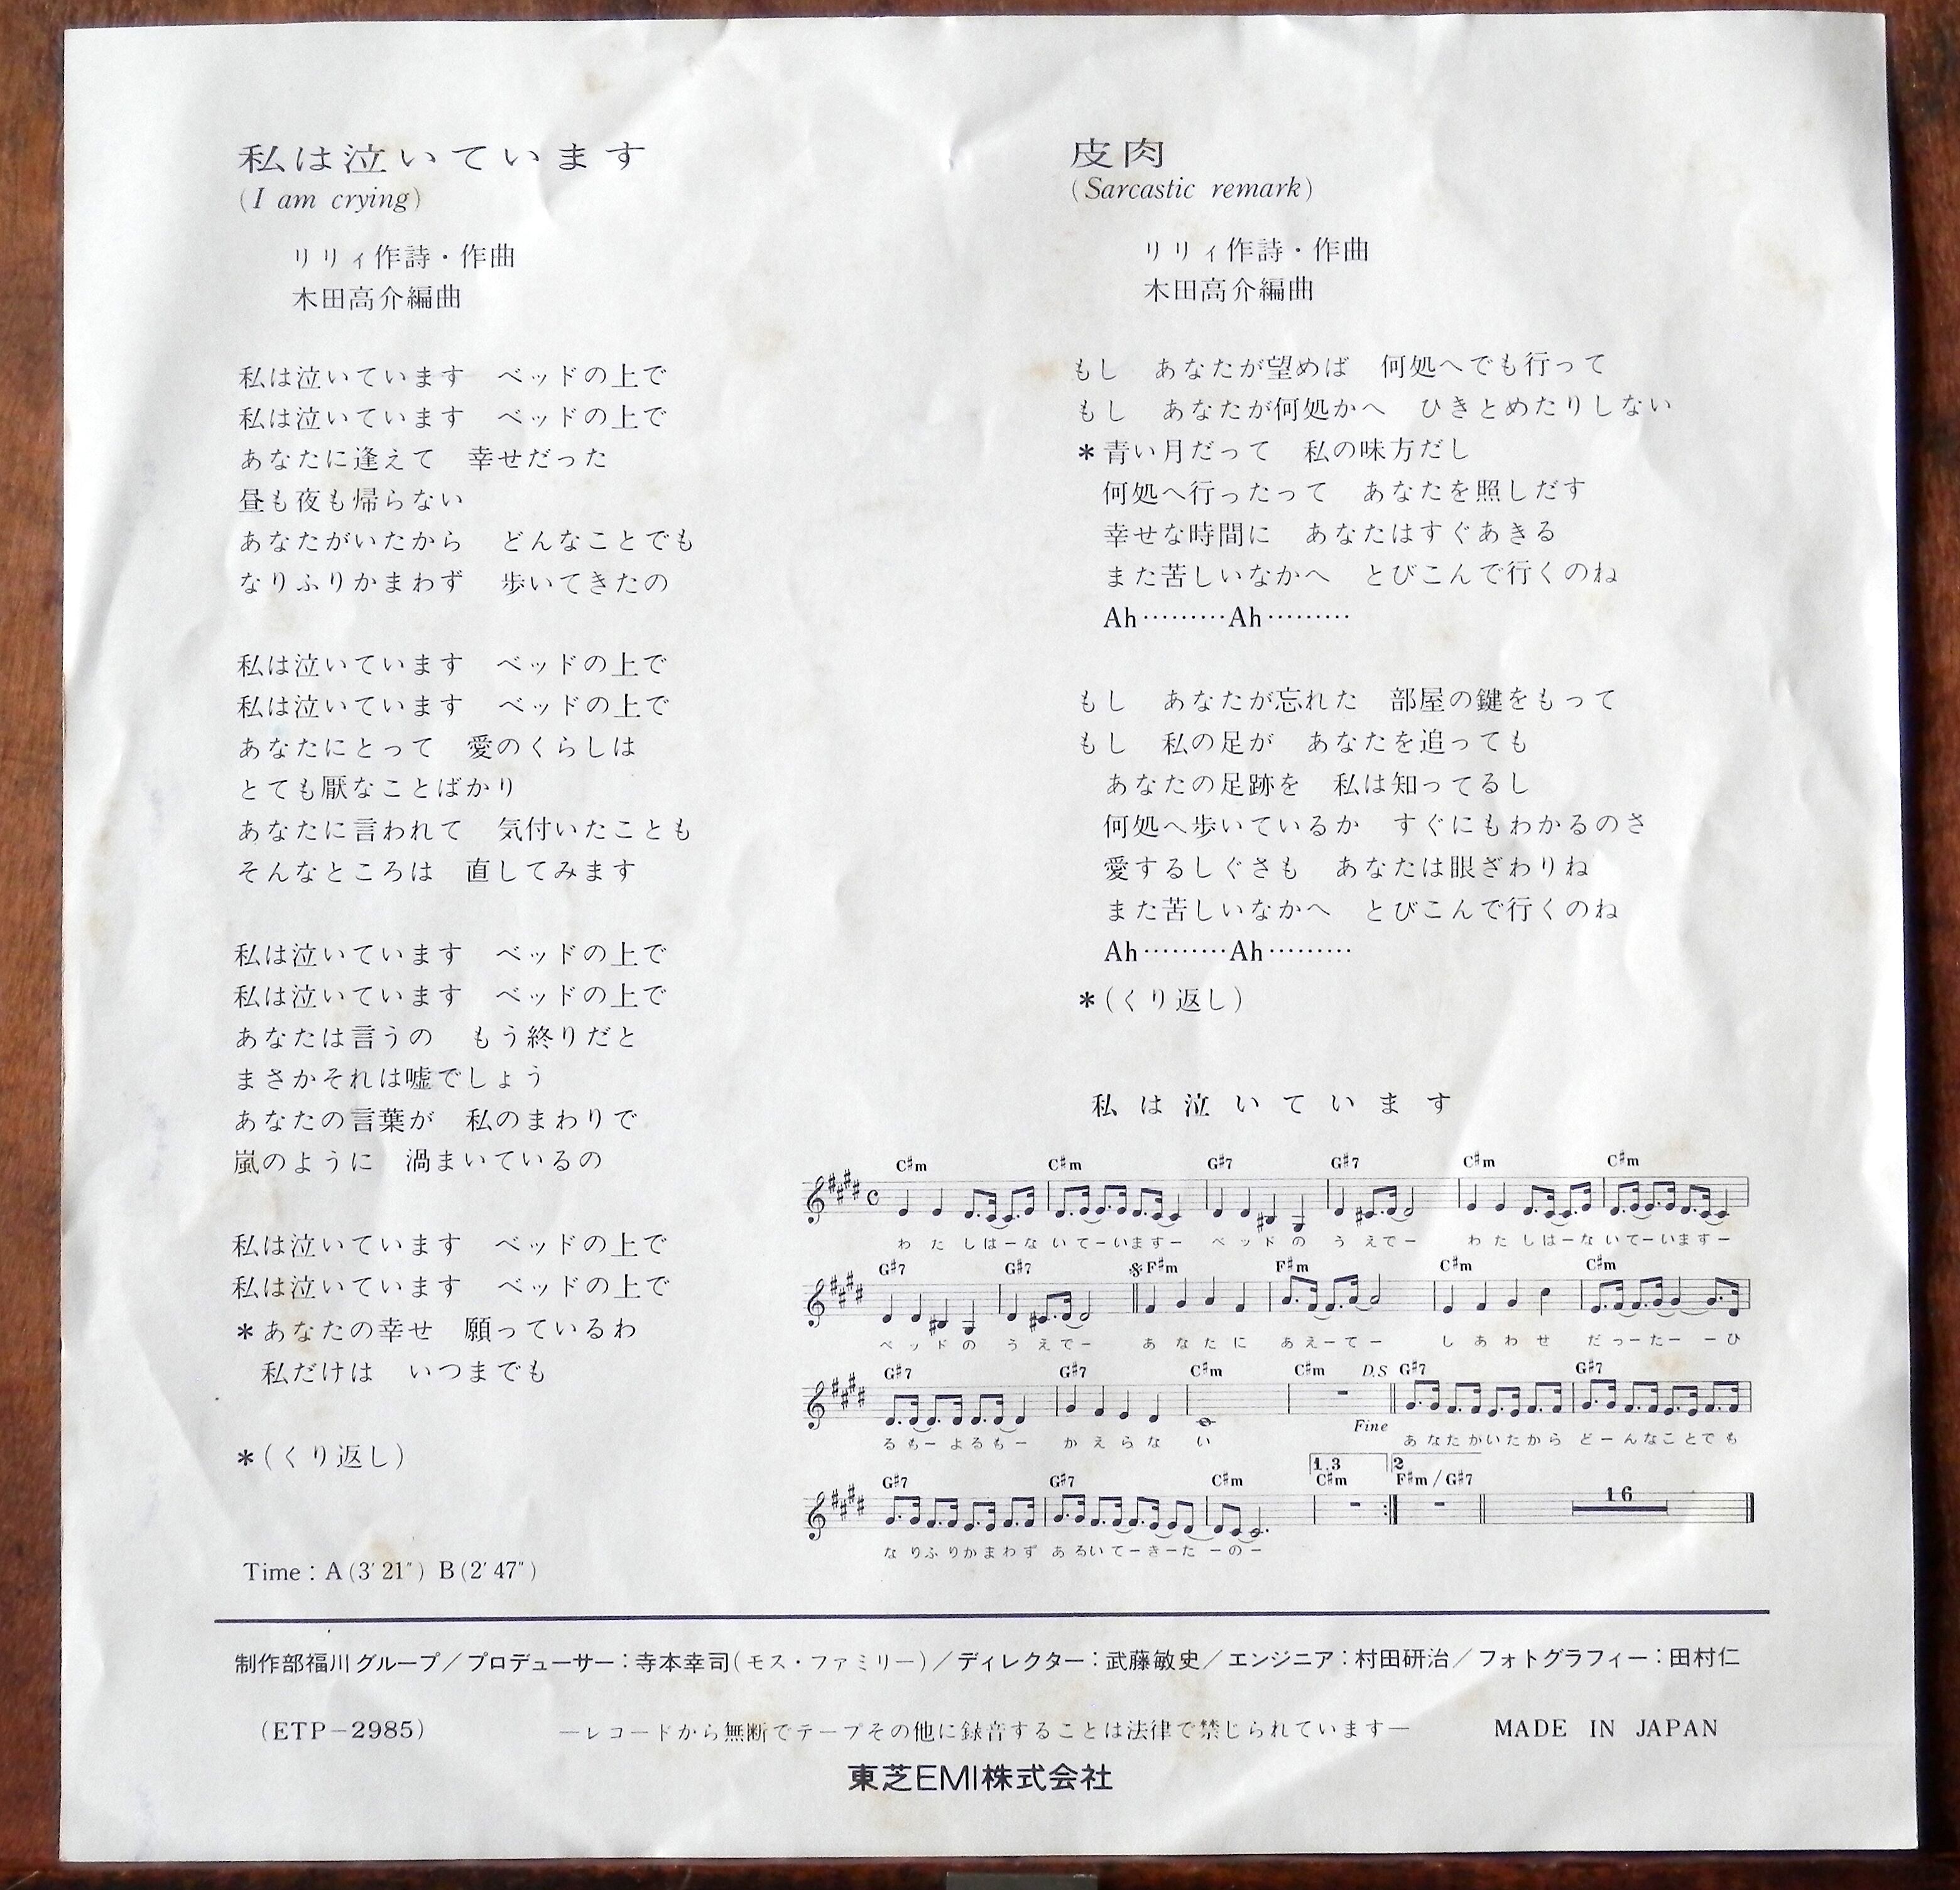 私は泣いています
(I am crying)
リリィ作詩・作曲
木田高介編曲
私は泣いています　ベッドの上で
私は泣いています　ベッドの上で
あなたに逢えて　幸せだった
昼も夜も帰らない
あなたがいたから　どんなことでも
なりふりかまわず　歩いてきたの
私は泣いています　ベッドの上で
私は泣いています　ベッドの上で
あなたにとって　愛のくらしは
とても厭なことばかり
あなたに言われて　気付いたことも
そんなところは　直してみます
私は泣いています　ベッドの上で
私は泣いています　ベッドの上で
あなたは言うの　もう終りだと
まさかそれは嘘でしょう
あなたの言葉が　私のまわりで
嵐のように　渦まいているの
私は泣いています　ベッドの上で
私は泣いています　ベッドの上で
＊あなたの幸せ　願っているわ
私だけは　いつまでも
＊(くり返し)
Time : A (3′21″) B (2′47″)
皮肉
(Sarcastic remark)
リリィ作詩・作曲
木田高介編曲
もし　あなたが望めば　何処へでも行って
もし　あなたが何処かへ　ひきとめたりしない
＊青い月だって　私の味方だし
何処へ行ったって　あなたを照しだす
幸せな時間に　あなたはすぐあきる
また苦しいなかへ　とびこんで行くのね
Ah………Ah………
もし　あなたが忘れた　部屋の鍵をもって
もし　私の足が　あなたを追っても
あなたの足跡を　私は知ってるし
何処へ歩いているか　すぐにもわかるのさ
愛するしぐさも　あなたは眼ざわりね
また苦しいなかへ　とびこんで行くのね
Ah………Ah………
＊(くり返し)
私は泣いています
C♯m C♯m G♯7 G♯7 C♯m C♯m
わ た し はーな い てーいますー ベ ッ ド の う えでー わ た し はーな いてーいますー
G♯7 G♯7 F♯m F♯m C♯m C♯m
ベ ッ ド の う えでー あ な た に あ えーてー し あ わ せ だ ったー ーひ
G♯7 G♯7 C♯m C♯m D.S G♯7 G♯7
Fine
る もー よ る もー か え ら な い あ な た が い た か ら どーんなことで も
1.3 2
G♯7 G♯7 C♯m C♯m F♯m / G♯7
16
な りふ りか まわ ず あ るい てーきーた ーのー
制作部福川グループ／プロデューサー：寺本幸司(モス・ファミリー)／ディレクター：武藤敏史／エンジニア：村田研治／フォトグラフィー：田村仁
(ETP－2985)　―レコードから無断でテープその他に録音することは法律で禁じられています―　MADE IN JAPAN
東芝EMI株式会社